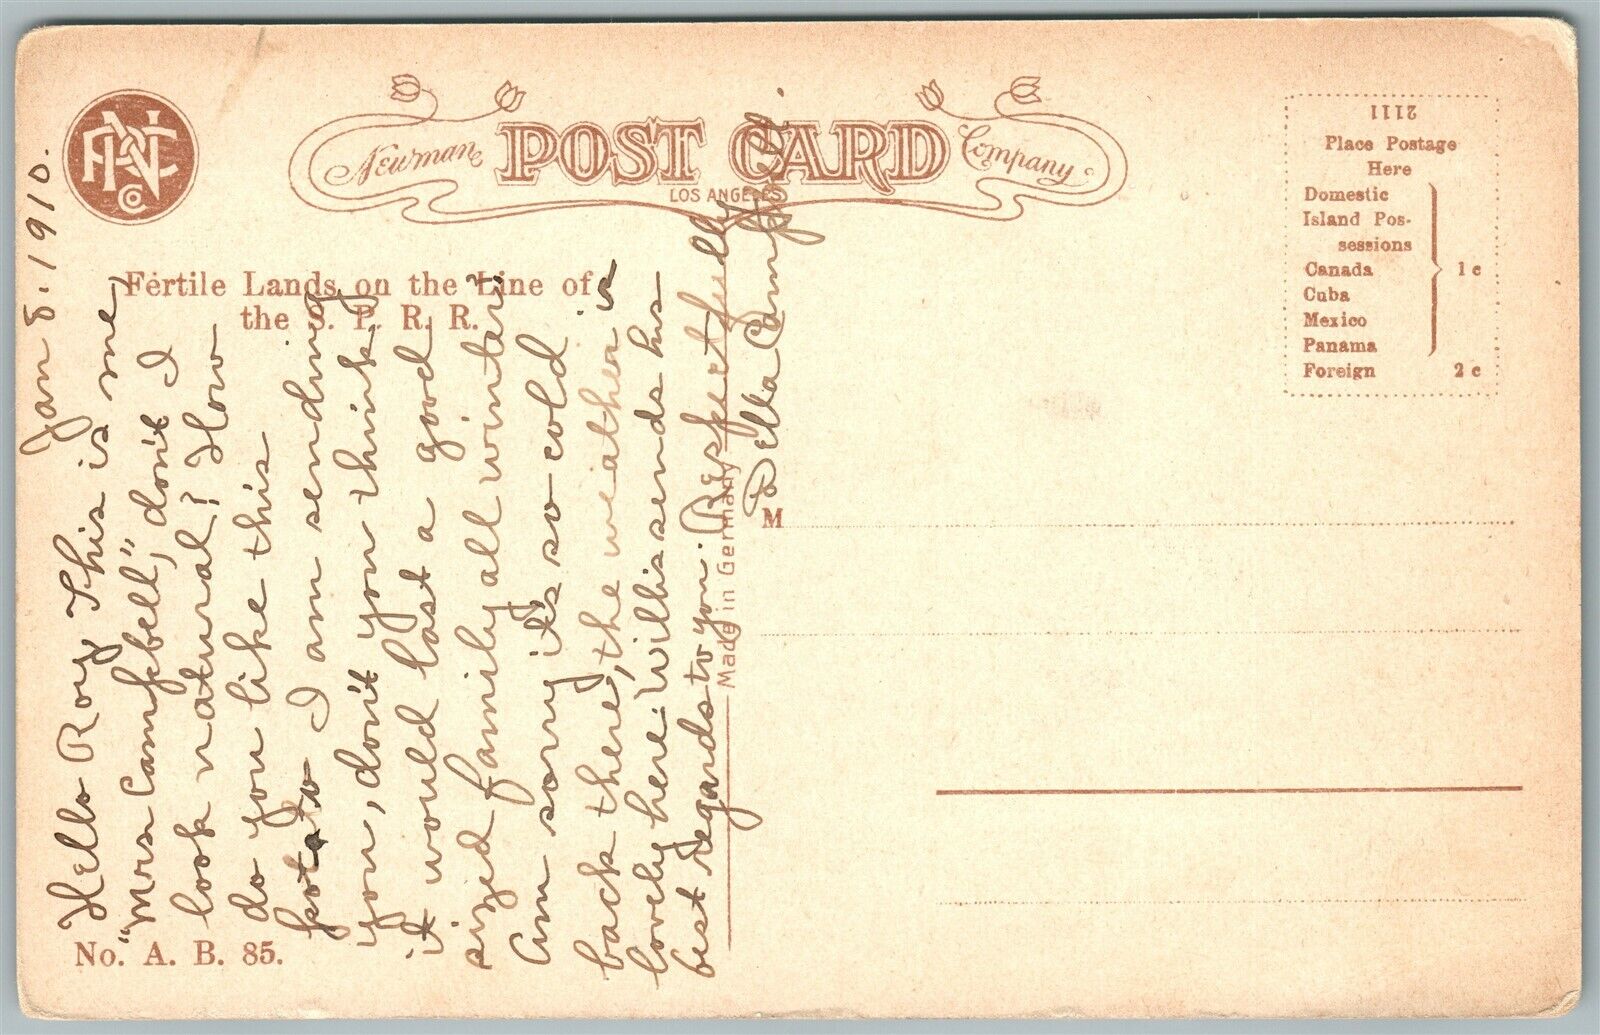 Newman POST CARD Company
LOS ANGELES
Fertile Lands on the Line of
the S. P. R. R.
2111
Place Postage
Here
Domestic
Island Pos-
sessions
Canada
Cuba
Mexico
Panama
1 c
Foreign 2 c
Jan 8. 1910.
Hello Roy, This is me,
"Mrs Campbell", don't I
look natural? How
do you like this
potato I am sending
you, don't you think
it would last a good
sized family all winter?
Am sorry it's so cold
back there, the weather is
lovely here. Willis sends his
best regards to you. Respectfully
Della Campbell.
Made in Germany
M
No. A. B. 85.